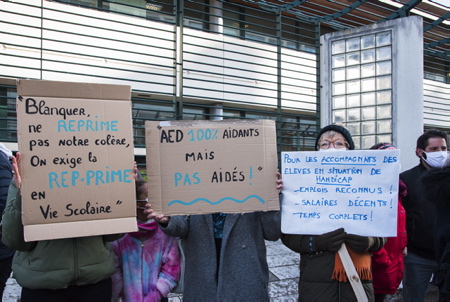 "Blanquer,
ne REPRIME
pas notre colère,
On exige la
REP-PRIME
en
Vie Scolaire"
AED 100% AIDANTS
MAIS
PAS AIDÉS!
POUR LES ACCOMPAGNANTS DES
ELEVES EN SITUATION DE
HANDICAP
- EMPLOIS RECONNUS!
- SALAIRES DÉCENTS!
- TEMPS COMPLETS!